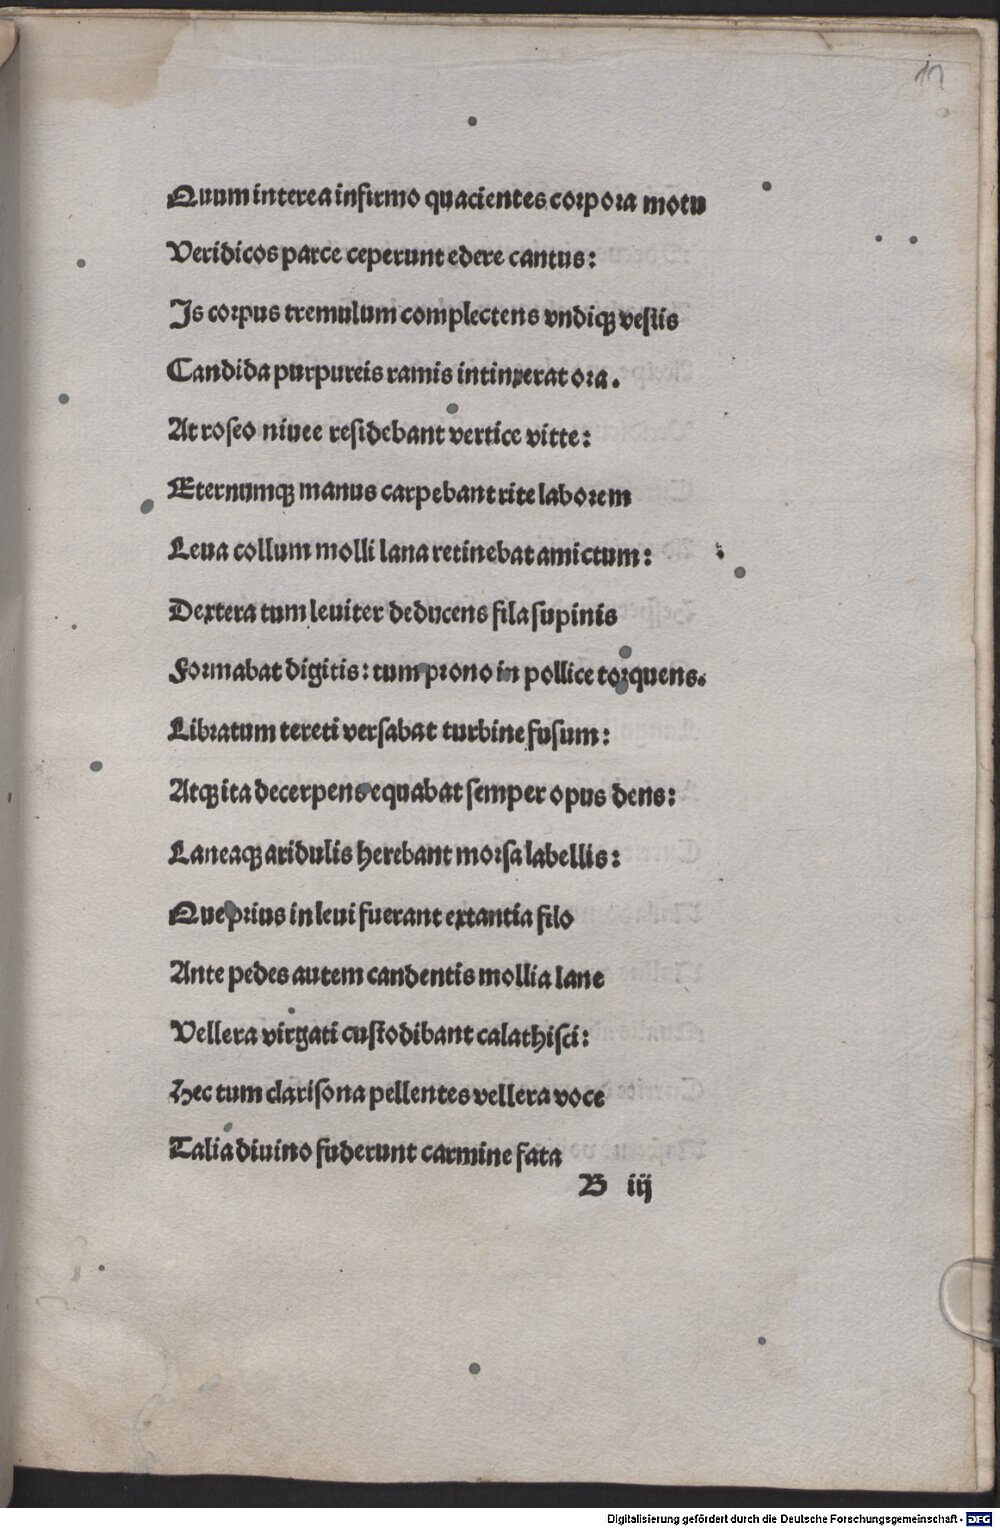 17
Quum interea infirmo quacientes corpora motu
Veridicos parce ceperunt edere cantus:
Is corpus tremulum complectens vndiqꝫ vestis
Candida purpureis ramis intinxerat ora.
At roseo niuee residebant vertice vitte:
Eternumqꝫ manus carpebant rite laborem
Leua collum molli lana retinebat amictum:
Dextera tum leuiter deducens fila supinis
Formabat digitis: tum prono in pollice torquens.
Libratum tereti versabat turbine fusum:
Atqꝫ ita decerpens equabat semper opus dens:
Laneaqꝫ aridulis herebant morsa labellis:
Que prius in leui fuerant extantia filo
Ante pedes autem candentis mollia lane
Vellera virgati custodibant calathisci:
Hec tum clarisona pellentes vellera voce
Talia diuino fuderunt carmine fata
B iij
Digitalisierung gefördert durch die Deutsche Forschungsgemeinschaft - DFG